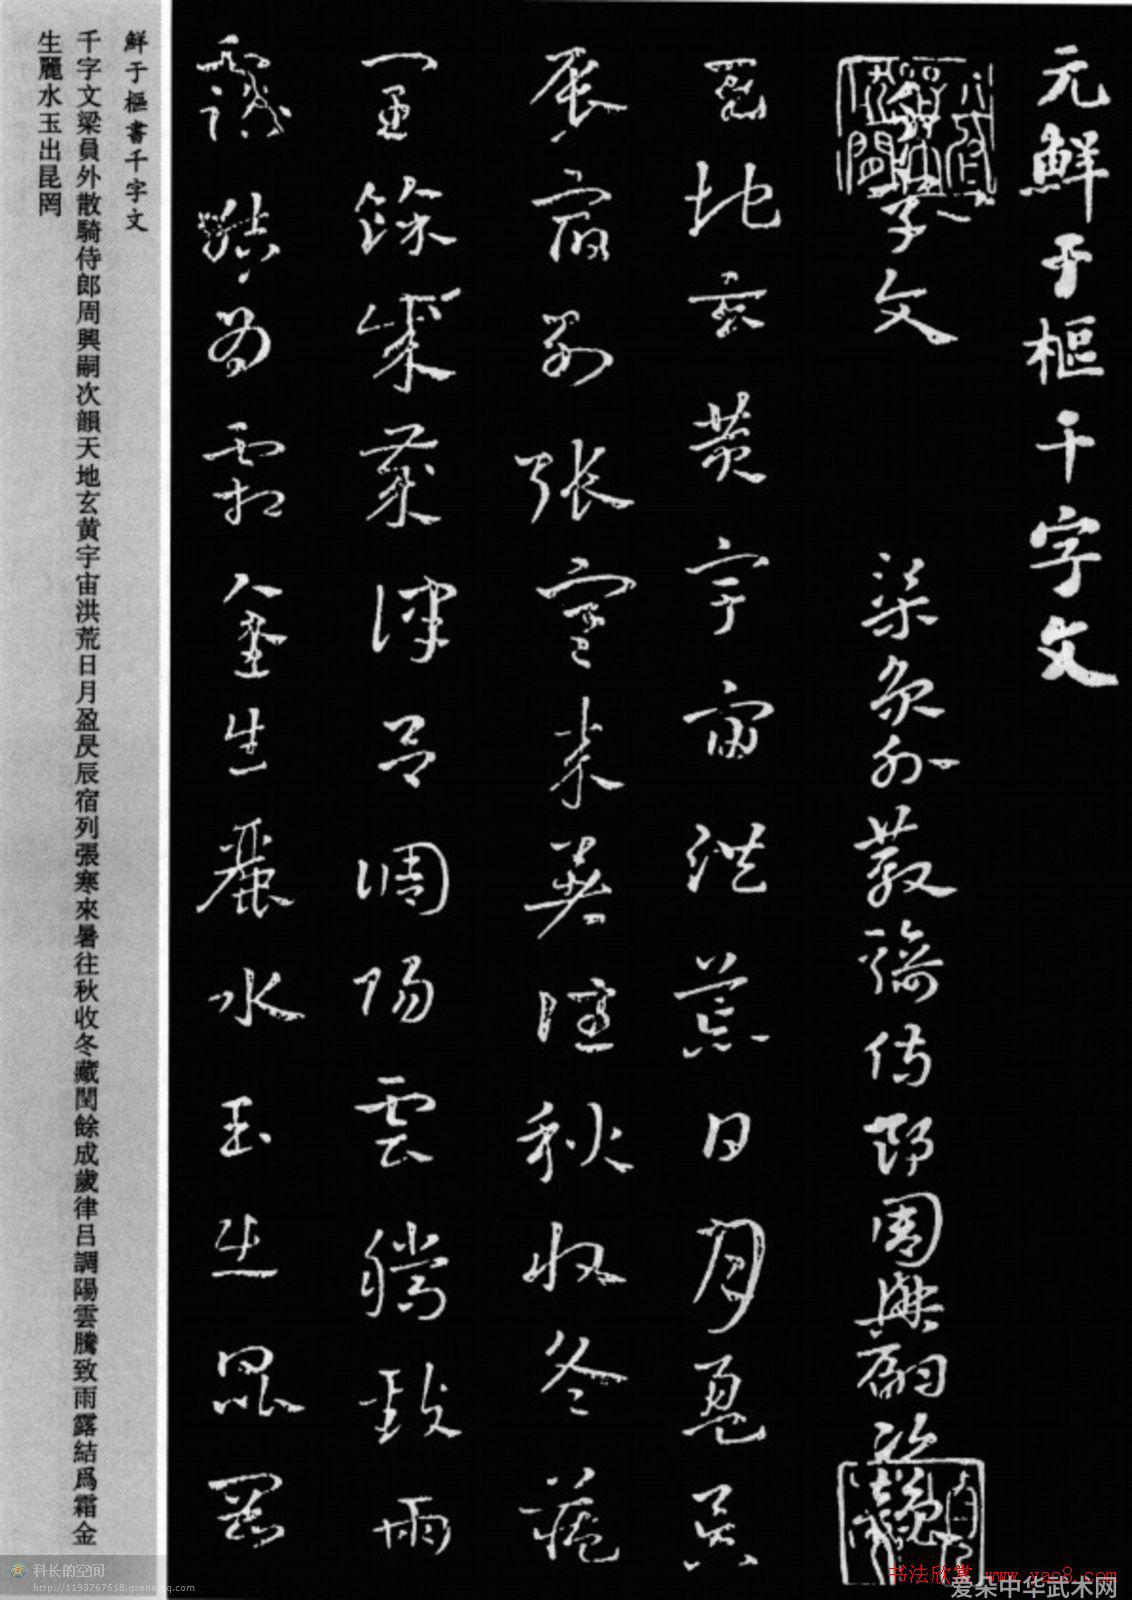 元鮮于樞千字文
千字文 梁員外散騎侍郎周興嗣次韻
天地玄黃宇宙洪荒日月盈昃
辰宿列張寒來暑往秋收冬藏
閏餘成歲律呂調陽雲騰致雨
露結為霜金生麗水玉出昆岡
鮮于樞書千字文
千字文梁員外散騎侍郎周興嗣次韻天地玄黄宇宙洪荒日月盈昃辰宿列張寒來暑往秋收冬藏閏餘成歲律呂調陽雲騰致雨露結爲霜金
生麗水玉出昆岡
科长的空间
http://1193767618.qzone.qq.com
书法欣赏 www.yac8.com
爱朵中华武术网